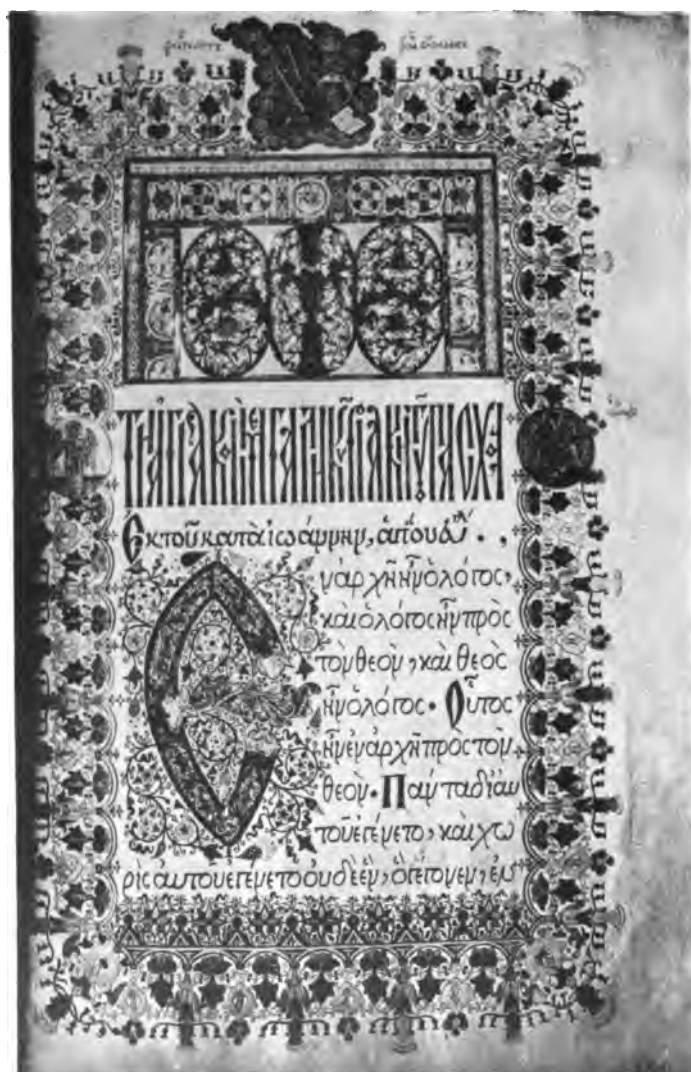 ΤΗ ἉΓΊΑ ΚΑΙ ΜΕΓΆΛΗ ΚΥΡΙΑΚΗ ΤΟΥ ΠΆΣΧΑ
Ἐκ τοῦ κατὰ ἰωάννην, ἁγίου
Εν ἀρχῆ ἦν ὁ λόγος,
καὶ ὁ λόγος ἦν πρὸς
τὸν θεὸν, καὶ θεὸς
ἦν ὁ λόγος. Οὗτος
ἦν ἐν ἀρχῆ πρὸς τὸν
θεὸν. Πάντα δι αυ
τοῦ ἐγένετο, καὶ χω
ρὶς αυτοῦ ἐγένετο ὀυδὲ ἐν, ὃ γέγονεν, ἐν